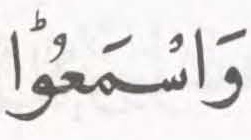 وَاسْمَعُوْاؕ